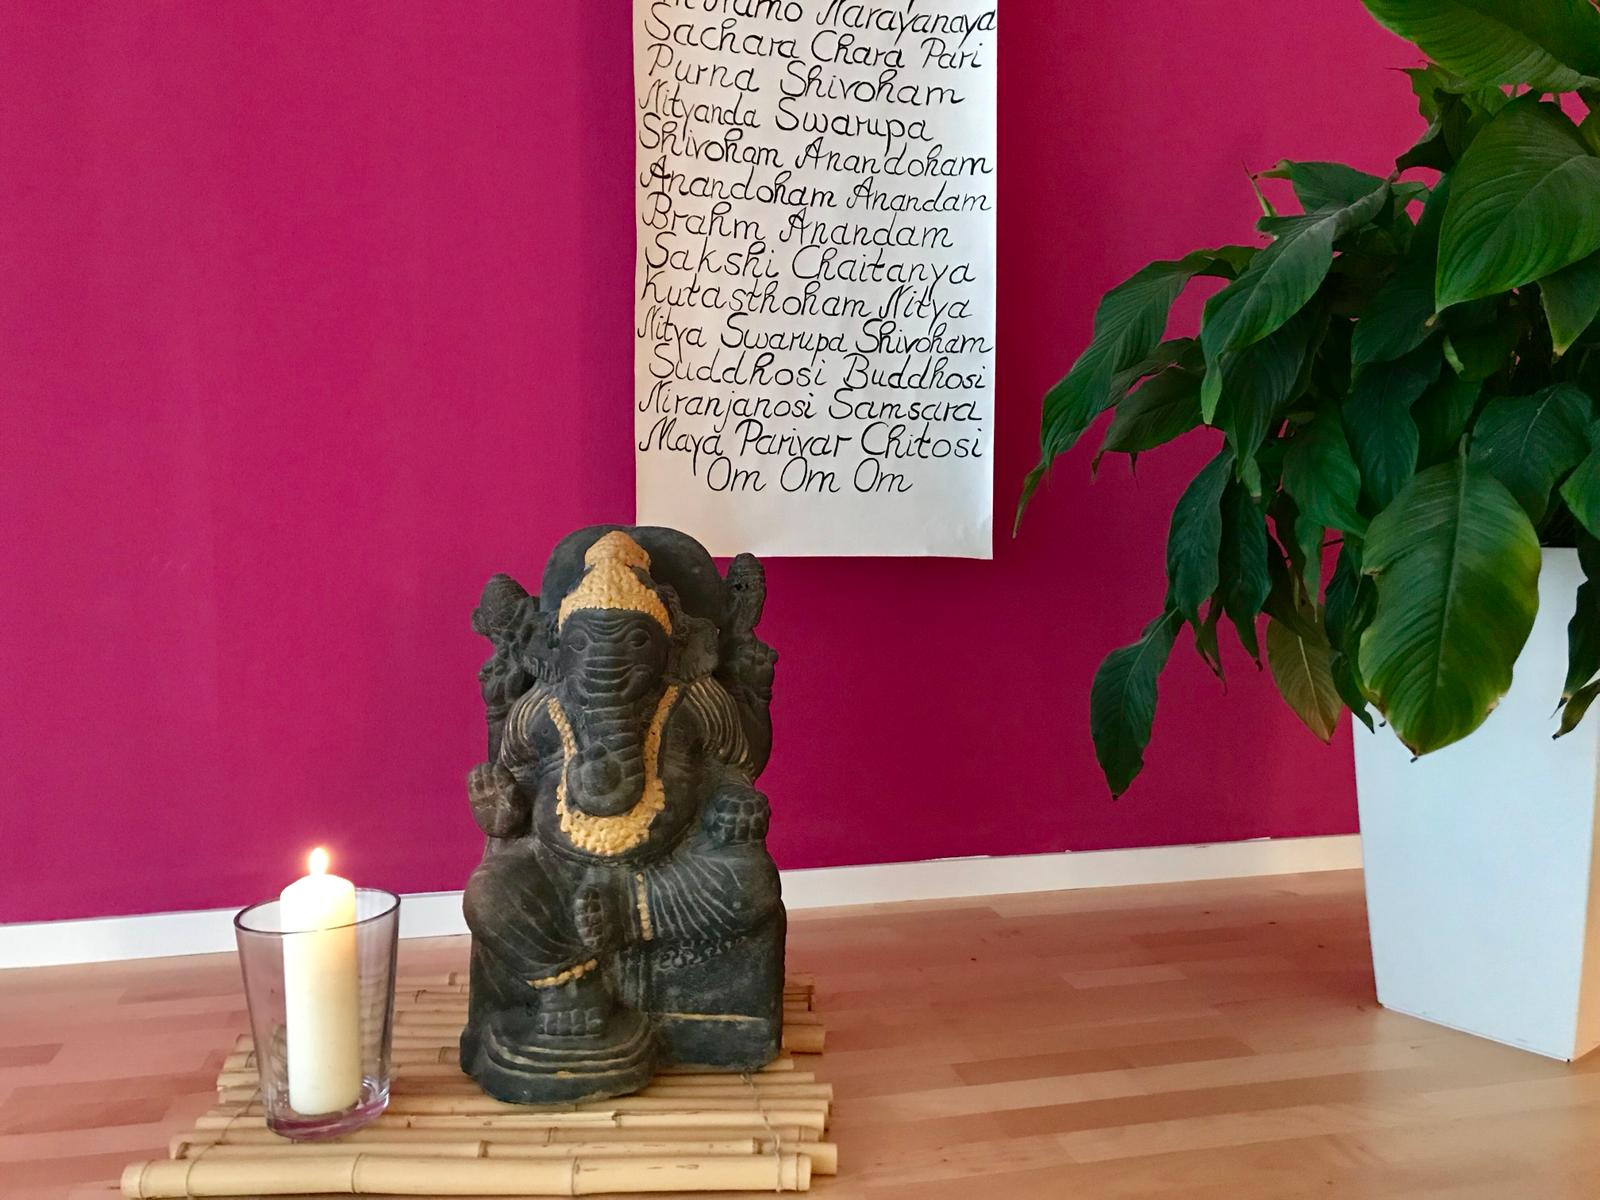 Namo Narayanaya
Sachara Chara Pari
Purna Shivoham
Nityanda Swarupa
Shivoham Anandoham
Anandoham Anandam
Brahm Anandam
Sakshi Chaitanya
Kutasthoham Nitya
Nitya Swarupa Shivoham
Suddhosi Buddhosi
Niranjanosi Samsara
Maya Parivar Chitosi
Om Om Om